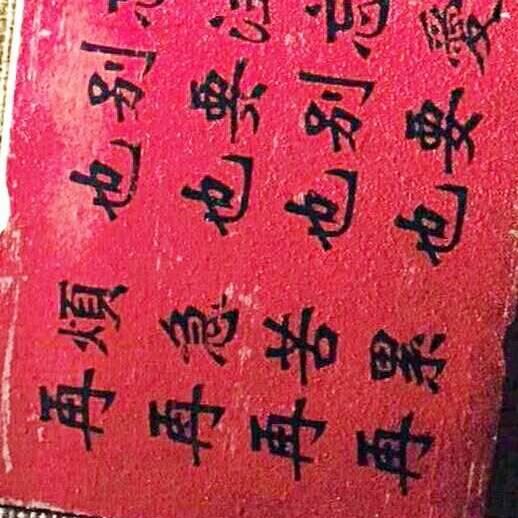 再煩也别
再急也要注
再苦也别忘
再累也要愛